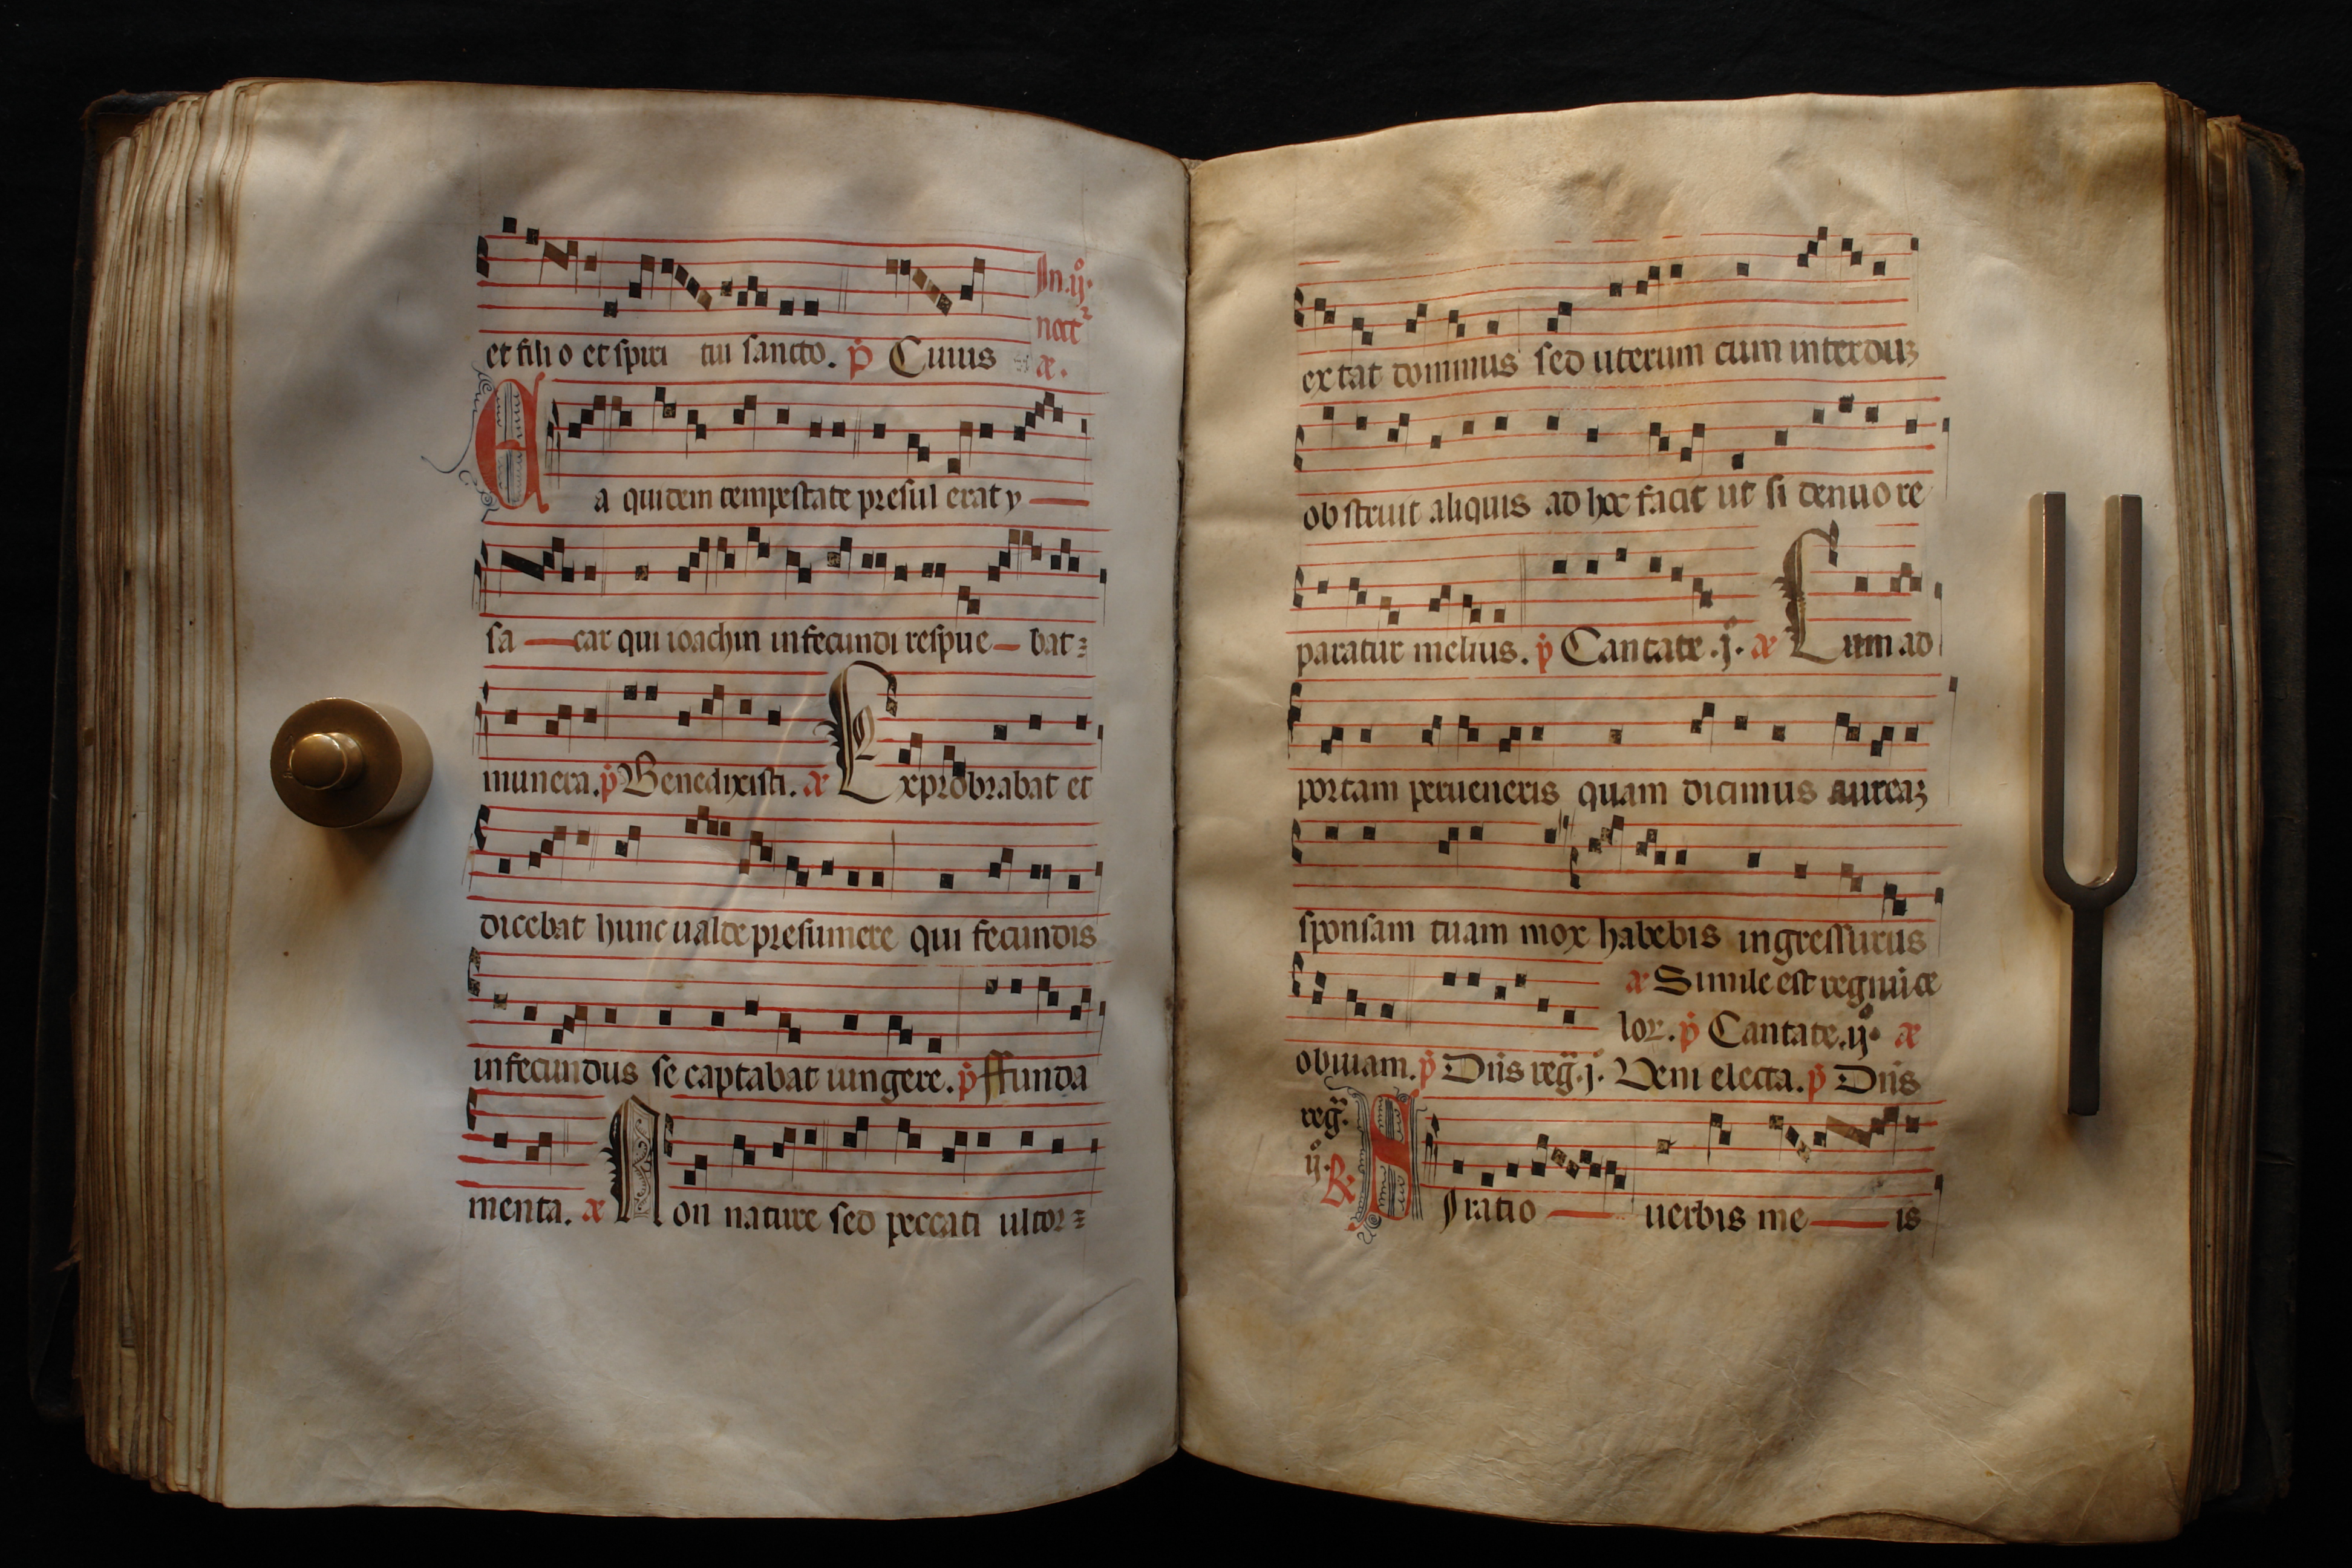 et filio et spiri tui sancto. p̄ Cuius
In .ij.
noct
æ.
Ea quidem tempestate presul erat y
sa car qui ioachin infecundi respue bat
munera. p̄ Benedixisti. æ Exprobrabat et
dicebat hunc ualde presumere qui fecundis
infecundus se captabat iungere. p̄ ffunda
menta. æ Non nature sed peccati ultor
extat dominus sed uterum cum interduʒ
obstruit aliquis ad hoc facit ut si denuo re
paratur melius. p̄ Cantate .j. æ Cum ad
portam perueneris quam dicimus aureaʒ
sponsam tuam mox habebis ingressurus
æ Simile est regnū ce
lor. p̄ Cantate .ij. æ
obuiam. p̄ Dn̄s reg̃ .j. Veni electa. p̄ Dn̄s
reg̃.
ij. ℟ Iratio uerbis me is